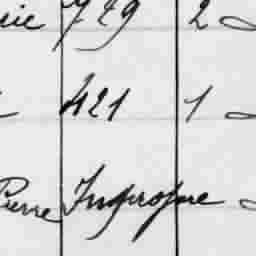 rie 729 2
421 1
Pierre Impropre